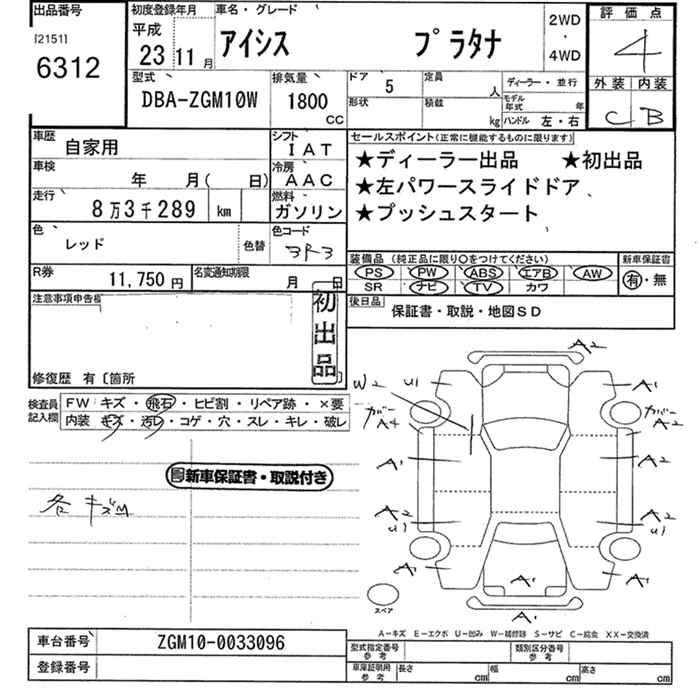 出品番号 初度登録年月 車名・グレード 2WD・4WD 評価点
[2151]
6312 平成23年11月 アイシス プラタナ 4
型式 排気量 ドア 5 定員 人 ディーラー・並行 外装 内装
DBA-ZGM10W 1800cc 形状 積載 kg モデル年式 年 ハンドル 左・右 C B
車歴 自家用 シフト IAT セールスポイント(正常に機能するものに限ります)
車検 年 月( 日) 冷房 AAC ★ディーラー出品 ★初出品
走行 8万3千289 km 燃料 ガソリン ★左パワースライドドア
★プッシュスタート
色 レッド 色替 色コード 3R3
装備品(純正品に限り○をつけてください) 新車保証書
R券 11,750円 名変通知期限 月 日 PS PW ABS エアB AW 有・無
SR ナビ TV カワ
注意事項申告欄 初出品 後日品 保証書・取説・地図SD
修復歴 有〔箇所
検査員記入欄 FW キズ・飛石・ヒビ割・リペア跡・×要
内装 キズ・汚レ・コゲ・穴・スレ・キレ・破レ
新車保証書・取説付き
各キズM
A2
W2 U1 A1
ガバー A4 ガバー A2
A1 A2
A2 U1 A2 U1
A1 A1 A1
スペア A1
A-キズ E-エクボ U-凹み W-補修跡 S-サビ C-腐食 XX-交換済
車台番号 ZGM10-0033096 型式指定番号 参考 類別区分番号 参考
登録番号 車庫証明用 参考 長さ cm 幅 cm 高さ cm